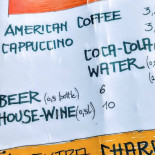 AMERICAN COFFEE 3,
CAPPUCCINO 3,
COCA-COLA
WATER (0,5
BEER (0,5 bottle) 6
HOUSE-WINE (0,5L) 10
EXTRA CHAR